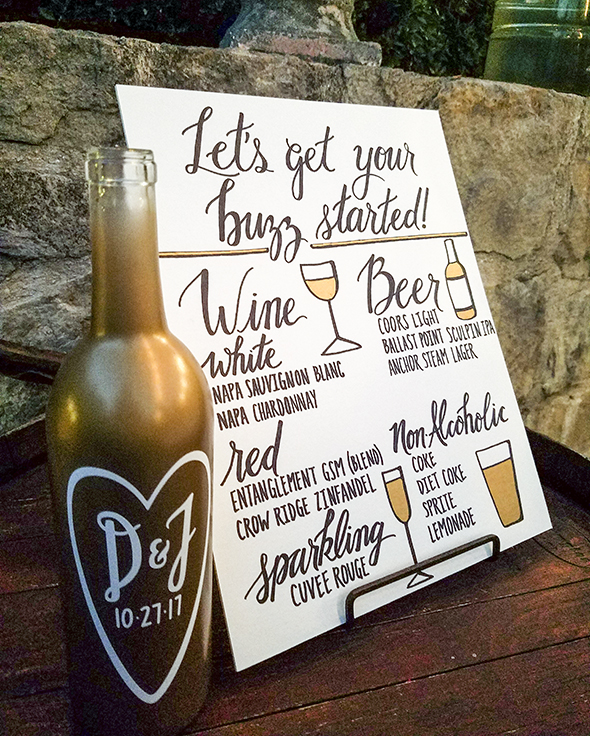 Let's get your
buzz started!
Wine
white
NAPA SAUVIGNON BLANC
NAPA CHARDONNAY
red
ENTANGLEMENT GSM (BLEND)
CROW RIDGE ZINFANDEL
sparkling
CUVEE ROUGE
Beer
COORS LIGHT
BALLAST POINT SCULPIN IPA
ANCHOR STEAM LAGER
Non Alcoholic
COKE
DIET COKE
SPRITE
LEMONADE
D&J
10·27·17